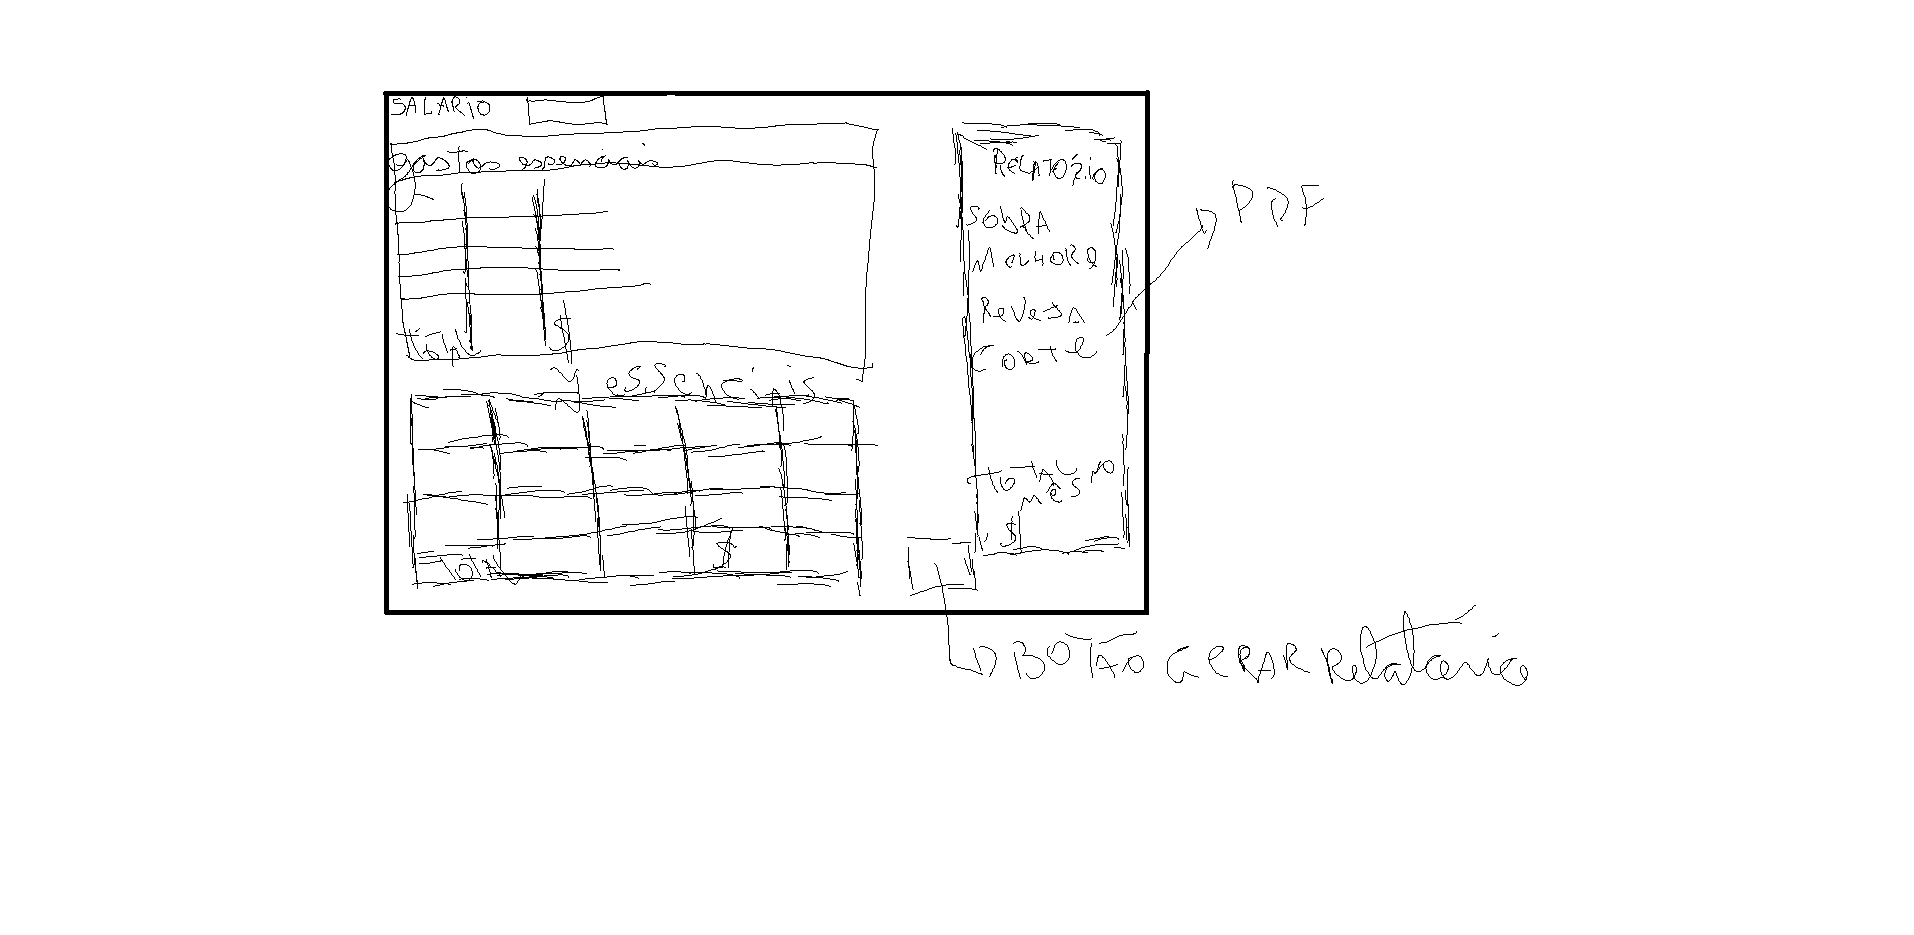 SALARIO
gastos essenciais
TOTAL $
essenciais
TOTAL $
RELATÓRIO
SOBRA
MELHORE
REVEJA
CORTE
TOTAL NO
MÊS
$
PDF
BOTÃO GERAR Relatório